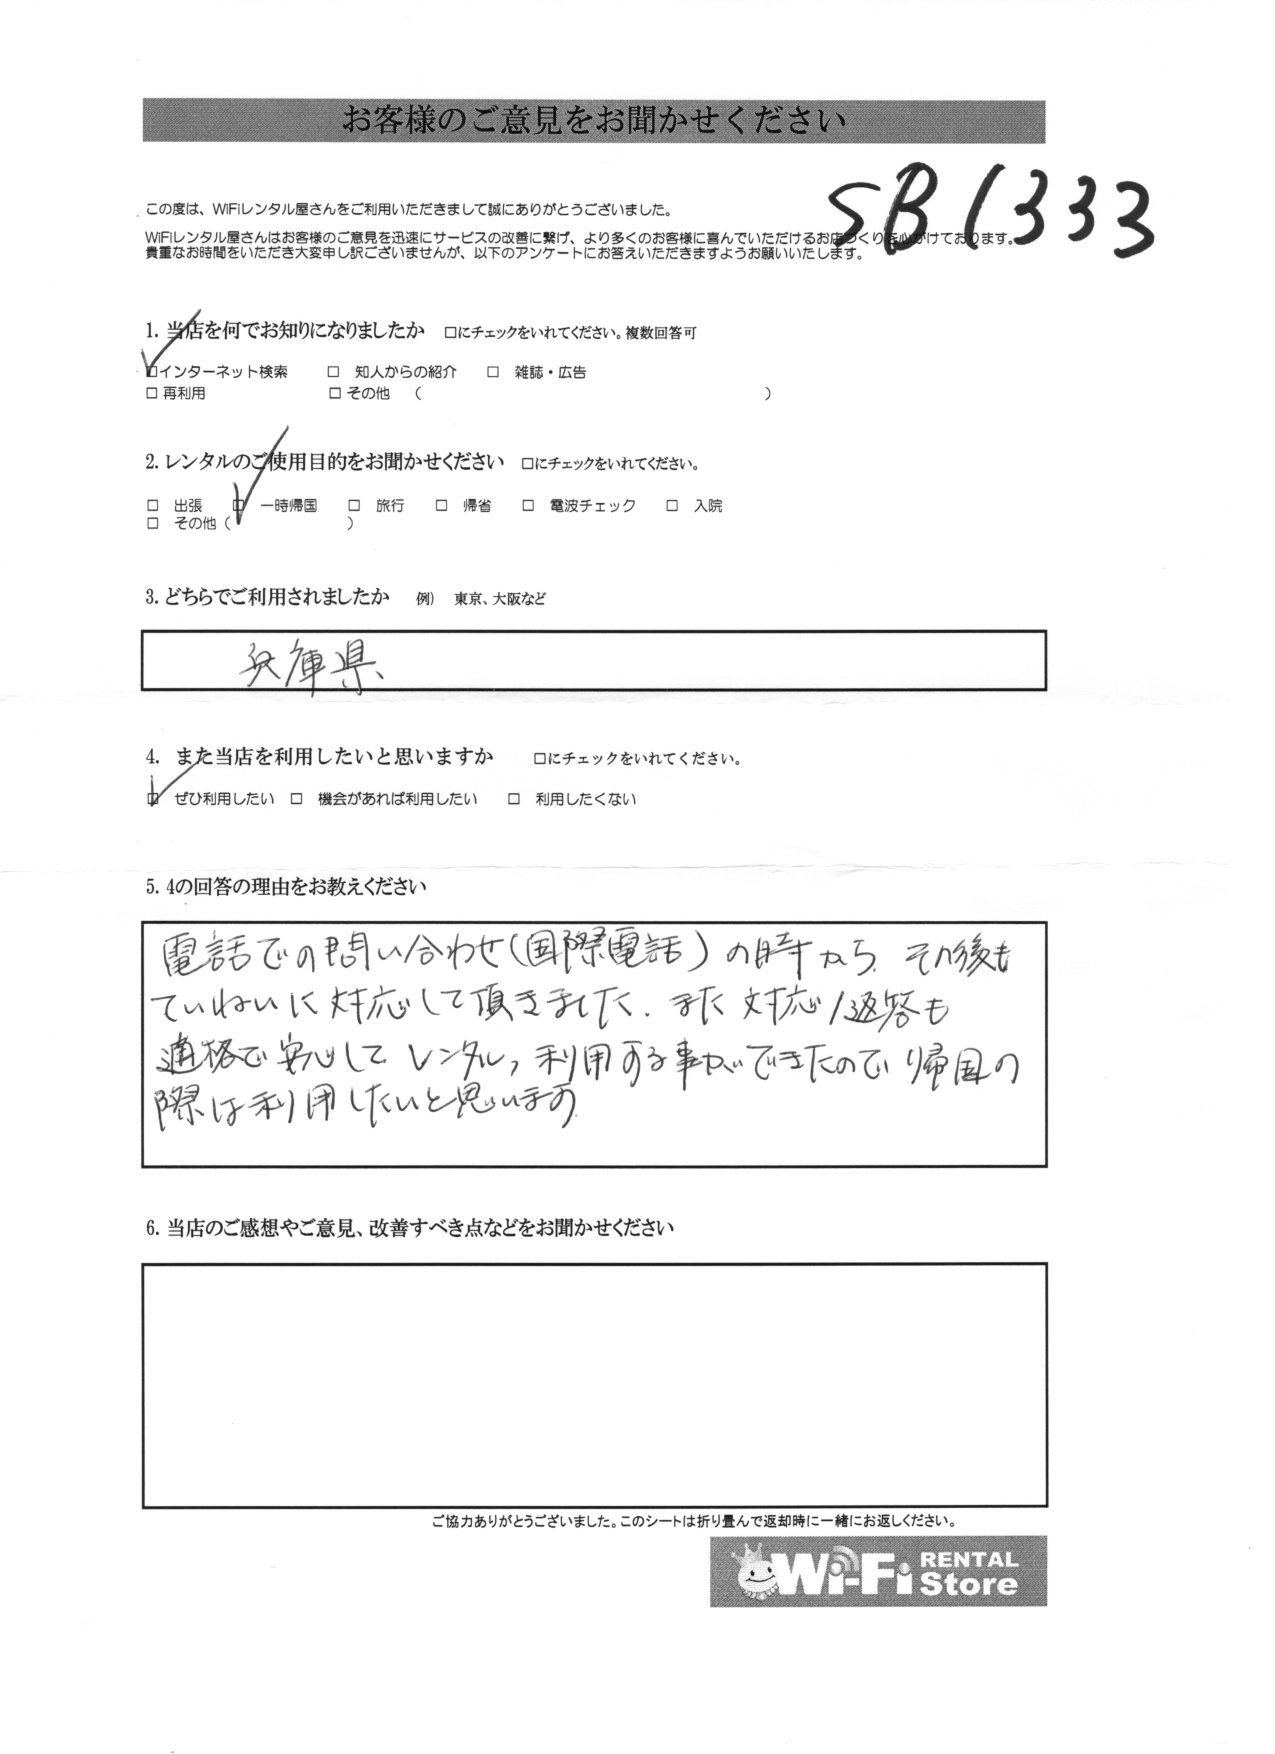 お客様のご意見をお聞かせください
SB1333
この度は、WiFiレンタル屋さんをご利用いただきまして誠にありがとうございました。
WiFiレンタル屋さんはお客様のご意見を迅速にサービスの改善に繋げ、より多くのお客様に喜んでいただけるお店づくりを心がけております。
貴重なお時間をいただき大変申し訳ございませんが、以下のアンケートにお答えいただきますようお願いいたします。
1. 当店を何でお知りになりましたか　□にチェックをいれてください。複数回答可
☑インターネット検索　□ 知人からの紹介　□ 雑誌・広告
□ 再利用　□ その他　（　）
2. レンタルのご使用目的をお聞かせください　□にチェックをいれてください。
□ 出張　☑ 一時帰国　□ 旅行　□ 帰省　□ 電波チェック　□ 入院
□ その他（　）
3. どちらでご利用されましたか　例）　東京、大阪など
兵庫県
4. また当店を利用したいと思いますか　□にチェックをいれてください。
☑ ぜひ利用したい　□ 機会があれば利用したい　□ 利用したくない
5. 4の回答の理由をお教えください
電話での問い合わせ(国際電話)の時から、その後も
ていねいに対応して頂きました。また対応/返答も
適格で安心してレンタル,利用する事ができたので帰国の
際は利用したいと思います
6. 当店のご感想やご意見、改善すべき点などをお聞かせください
ご協力ありがとうございました。このシートは折り畳んで返却時に一緒にお返しください。
Wi-Fi RENTAL Store